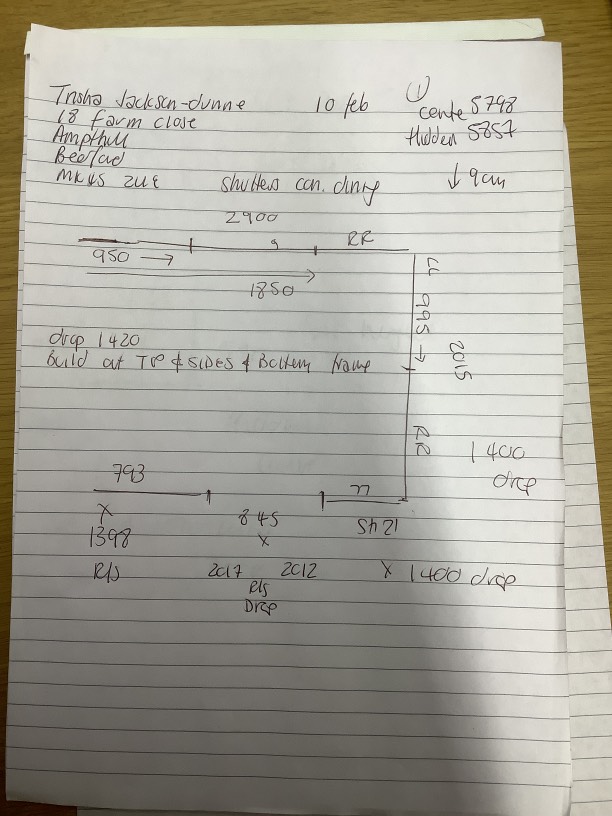 Trisha Jackson-dunne 10 feb ①
18 farm close cente 5798
Ampthill Hidden 5857
Bedford
MK45 2UE shutters con. dinng ↓ 9cm
2900
RR
950 →
1850
LL 995 → 2015 RR
drop 1420
Build out TOP & SIDES & Bottom frame
1400
drop
793
LL
x 845 1245
1398 x
R/S 2017 2012 x 1400 drop
R/S
Drop